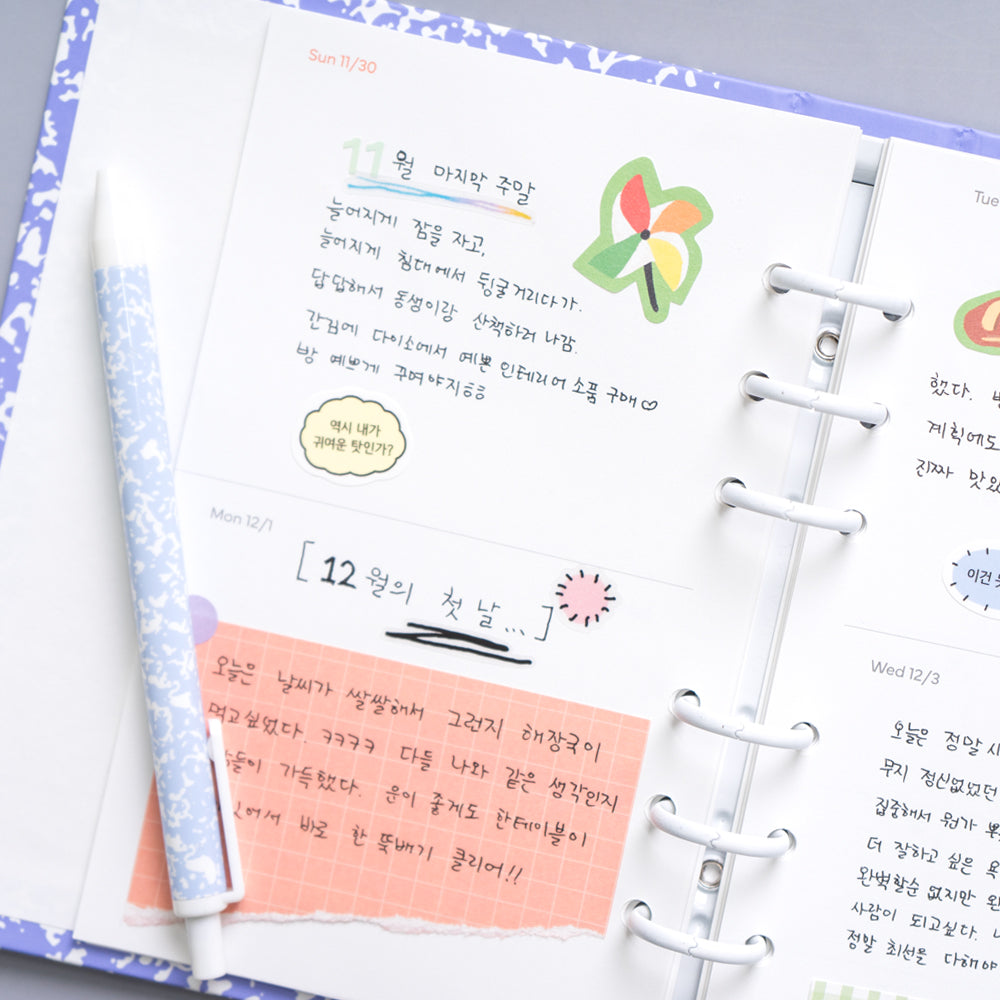 Sun 11/30
11월 마지막 주말
늘어지게 잠을 자고,
늘어지게 침대에서 뒹굴거리다가.
답답해서 동생이랑 산책하러 나감.
간김에 다이소에서 예쁜 인테리어 소품 구매♡
방 예쁘게 꾸며야지ㅎㅎ
역시 내가
귀여운 탓인가?
Mon 12/1
[12월의 첫 날...]
오늘은 날씨가 쌀쌀해서 그런지 해장국이
먹고싶었다. ㅋㅋㅋㅋ 다들 나와 같은 생각인지
가득했다. 운이 좋게도 한테이블이
바로 한 뚝배기 클리어!!
Tue
했다.
계획에도
진짜 맛있
이건
Wed 12/3
오늘은 정말
무지 정신없었던
집중해서 뭔가
더 잘하고 싶은 욕
완벽할순 없지만 완
사람이 되고싶다.
정말 최선을 다해야